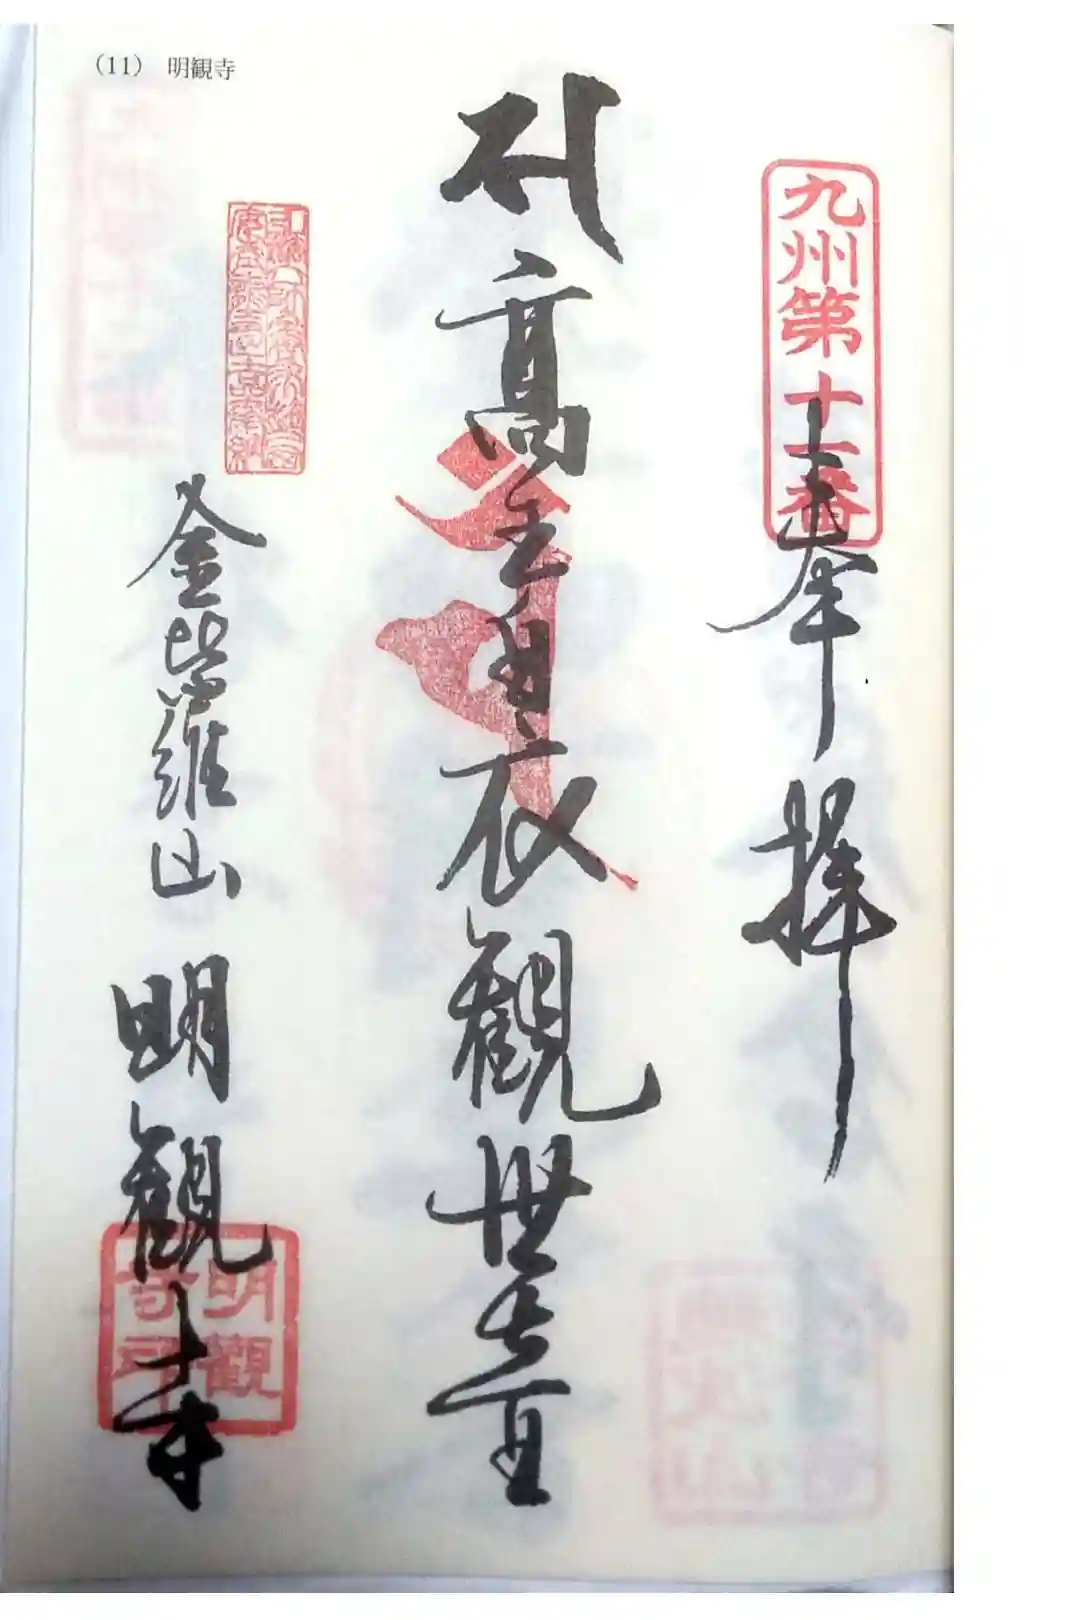 (11) 明観寺
九州第十一番
奉拝
高王白衣観世音
金毘羅山
明観寺
明觀寺印